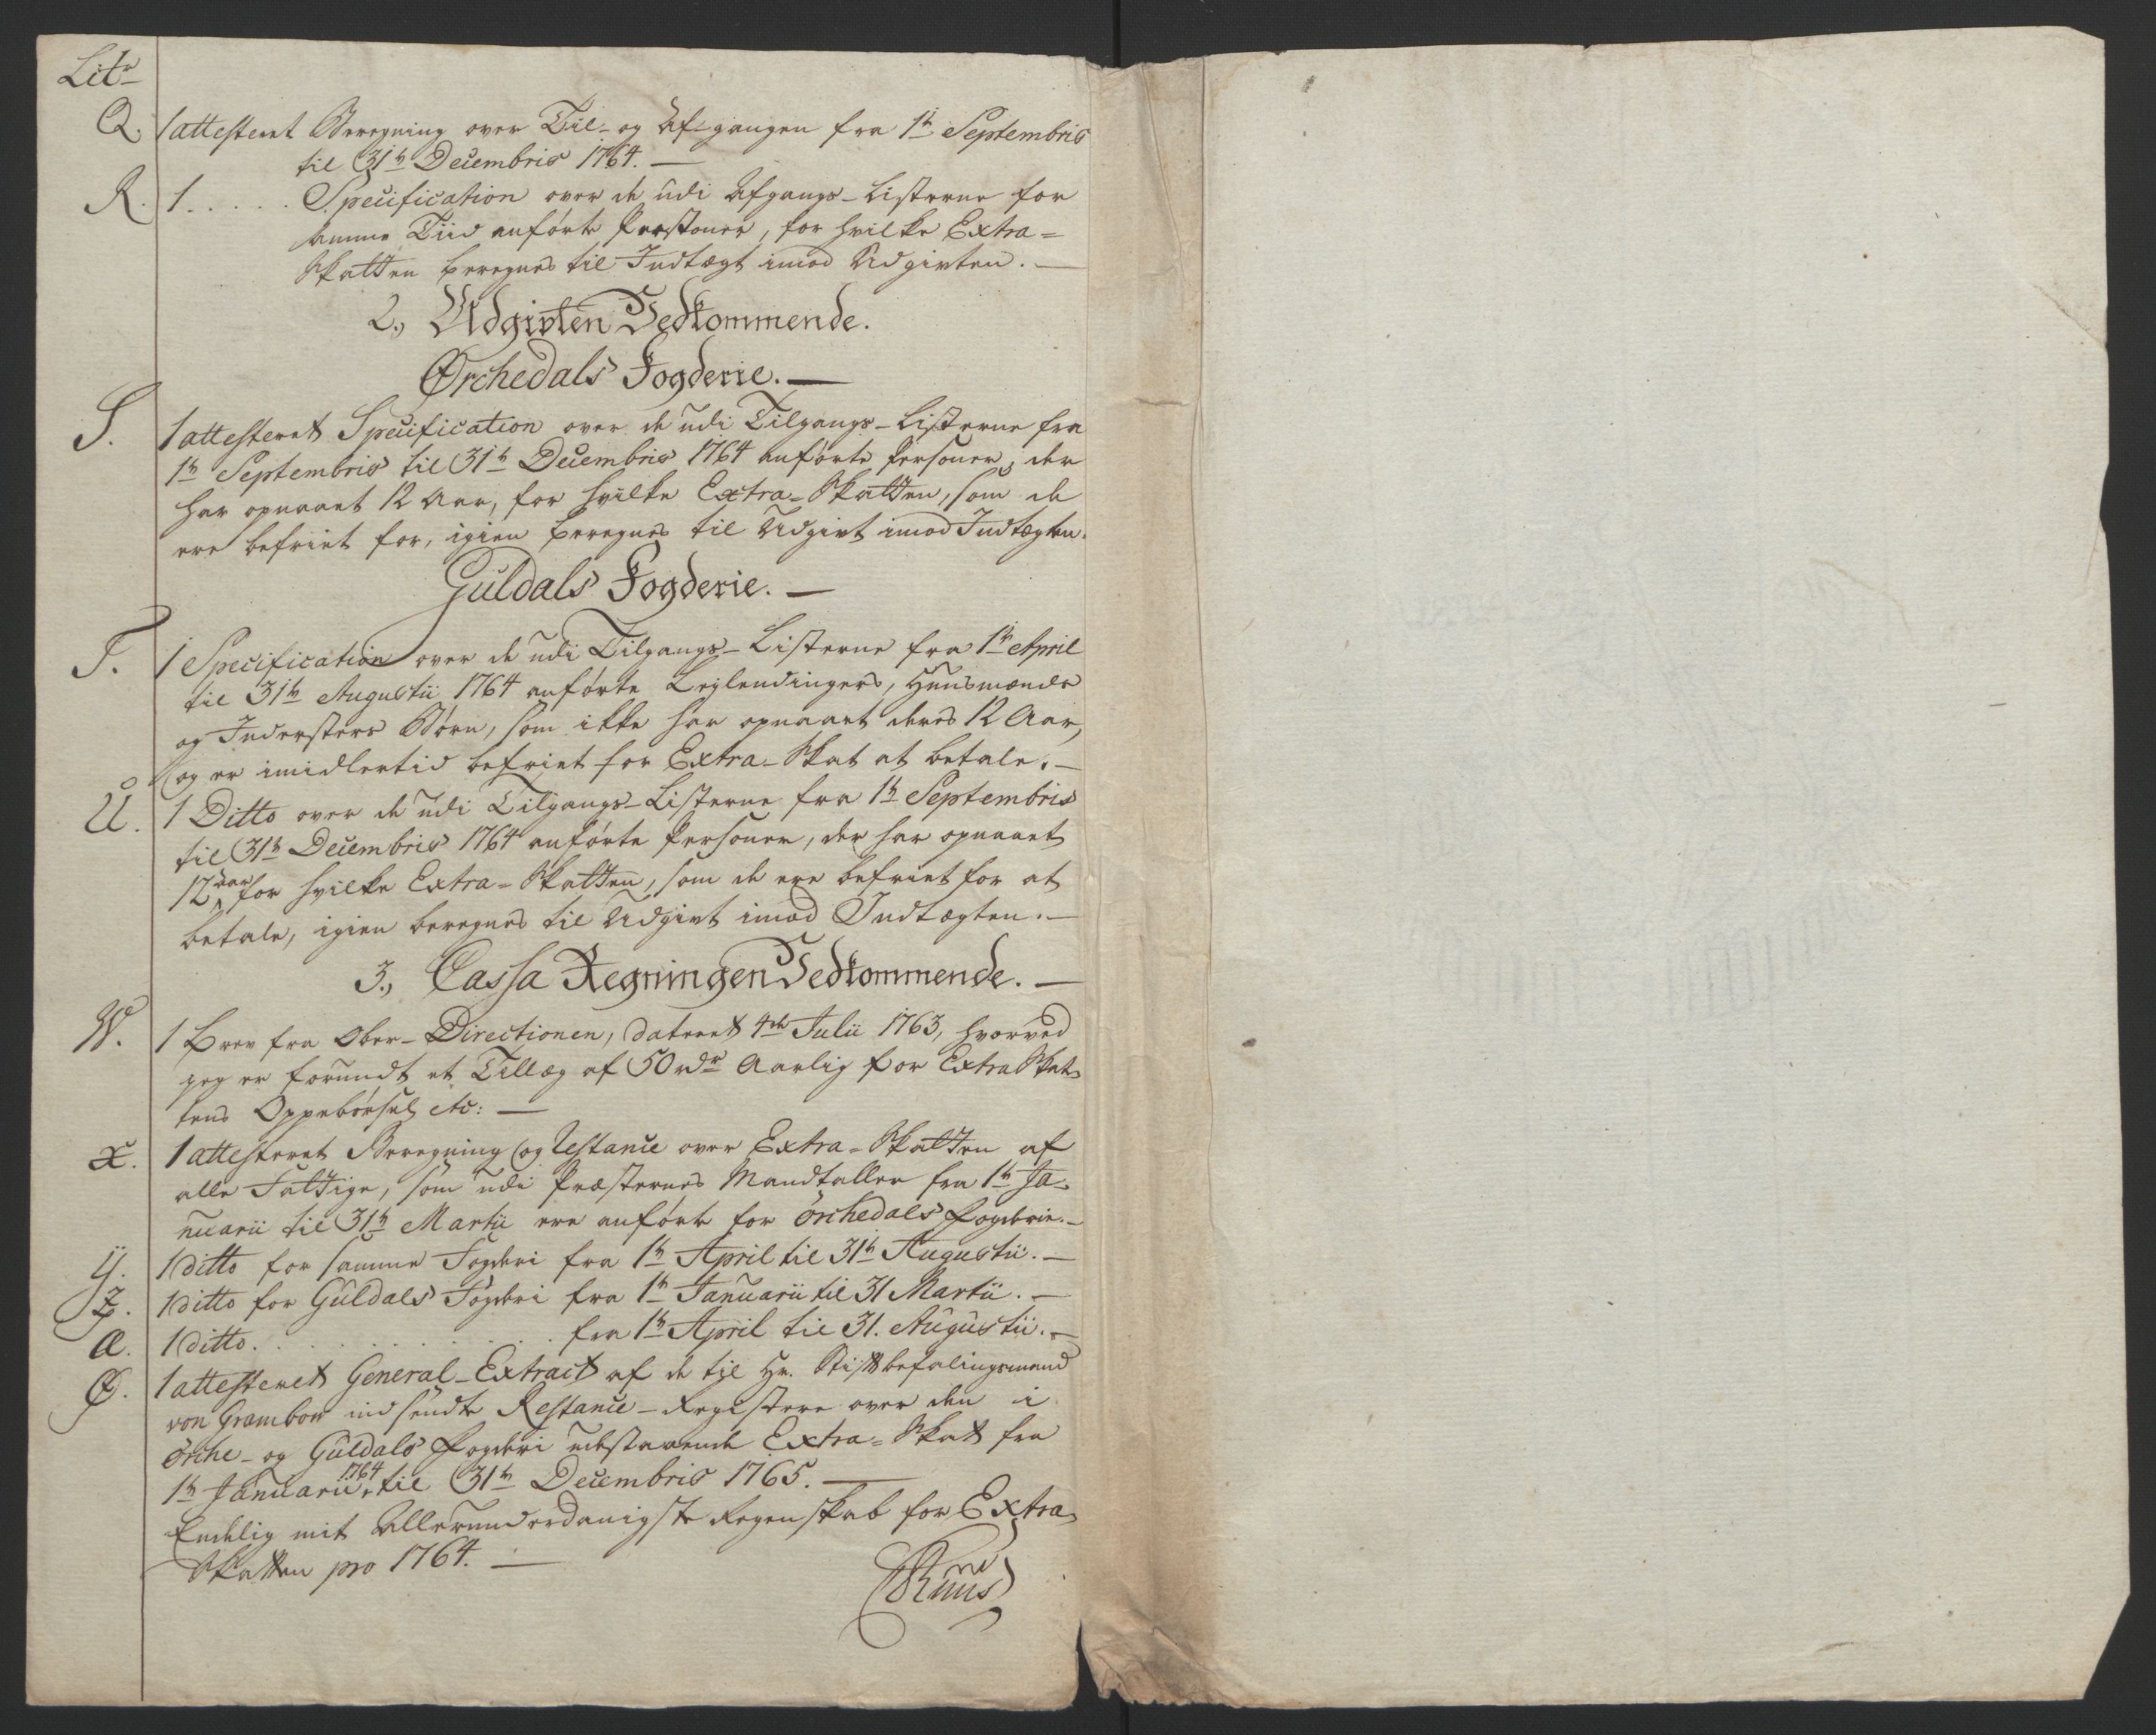 Litr
Q. 1 attesteret Beregning over Til- og Af-gangen fra 1te Septembris
til 31te Decembris 1764. —
R. 1 . . . . . Specification over de udi Afgangs-Listerne for
samme Tiid anførte Persohner, for hvilke Extra-
Skatten beregnes til Indtægt imod Udgivten. —
2., Udgivten Vedkommende.
Ørchedals Fogderie. —
S. 1 attesteret Specification over de udi Tilgangs-Listerne fra
1te Septembris til 31te Decembris 1764 anførte Personer, der
har opnaaet 12 Aar, for hvilke Extra-Skatten, som de
ere befriet for, igien beregnes til Udgivt imod Indtægten.
Guldals Fogderie. —
T. 1 Specification over de udi Tilgangs-Listerne fra 1te April
til 31te Augustii 1764 anførte Leylendingers, Huusmænds
og Indersters Børn, som ikke har opnaaet deres 12 Aar,
og er imidlertid befriet for Extra-Skat at betale. —
U. 1 Ditto over de udi Tilgangs-Listerne fra 1te Septembris
til 31te Decembris 1764 anførte Personer, der har opnaaet
12 aar for hvilke Extra-Skatten, som de ere befriet for at
betale, igien beregnes til Udgivt imod Indtægten. —
3., Cassa Regningen Vedkommende. —
W. 1 Brev fra Ober-Directionen, dateret 4de Julii 1763, hvorved
jeg er forundt et Tillæg af 50 rdr Aarlig for Extra Skat-
tens Oppebørsel etc: —
X. 1 attesteret Beregning og Restance over Extra-Skatten af
alle Fattige, som udi Præsternes Mandtaller fra 1te Ja-
nuarii til 31te Martii ere anførte for Ørchedals Fogderie. —
Y. 1 ditto for samme Fogderi fra 1te April til 31te Augustii. —
Z. 1 ditto for Guldals Fogderi fra 1te Januarii til 31 Martii. —
Æ. 1 ditto. . . . . . . . . . fra 1te April til 31. Augustii. —
Ø. 1 attesteret General-Extract af de til Hr. Stiftbefalingsmand
von Grambow indsendte Restance-Registere over den i
Ørche- og Guldals Fogderi udestaaende Extra-Skat fra
1te Januarii 1764 til 31te Decembris 1765. —
Endelig mit Allerunderdanigste Regenskab for Extra
Skatten pro 1764. —